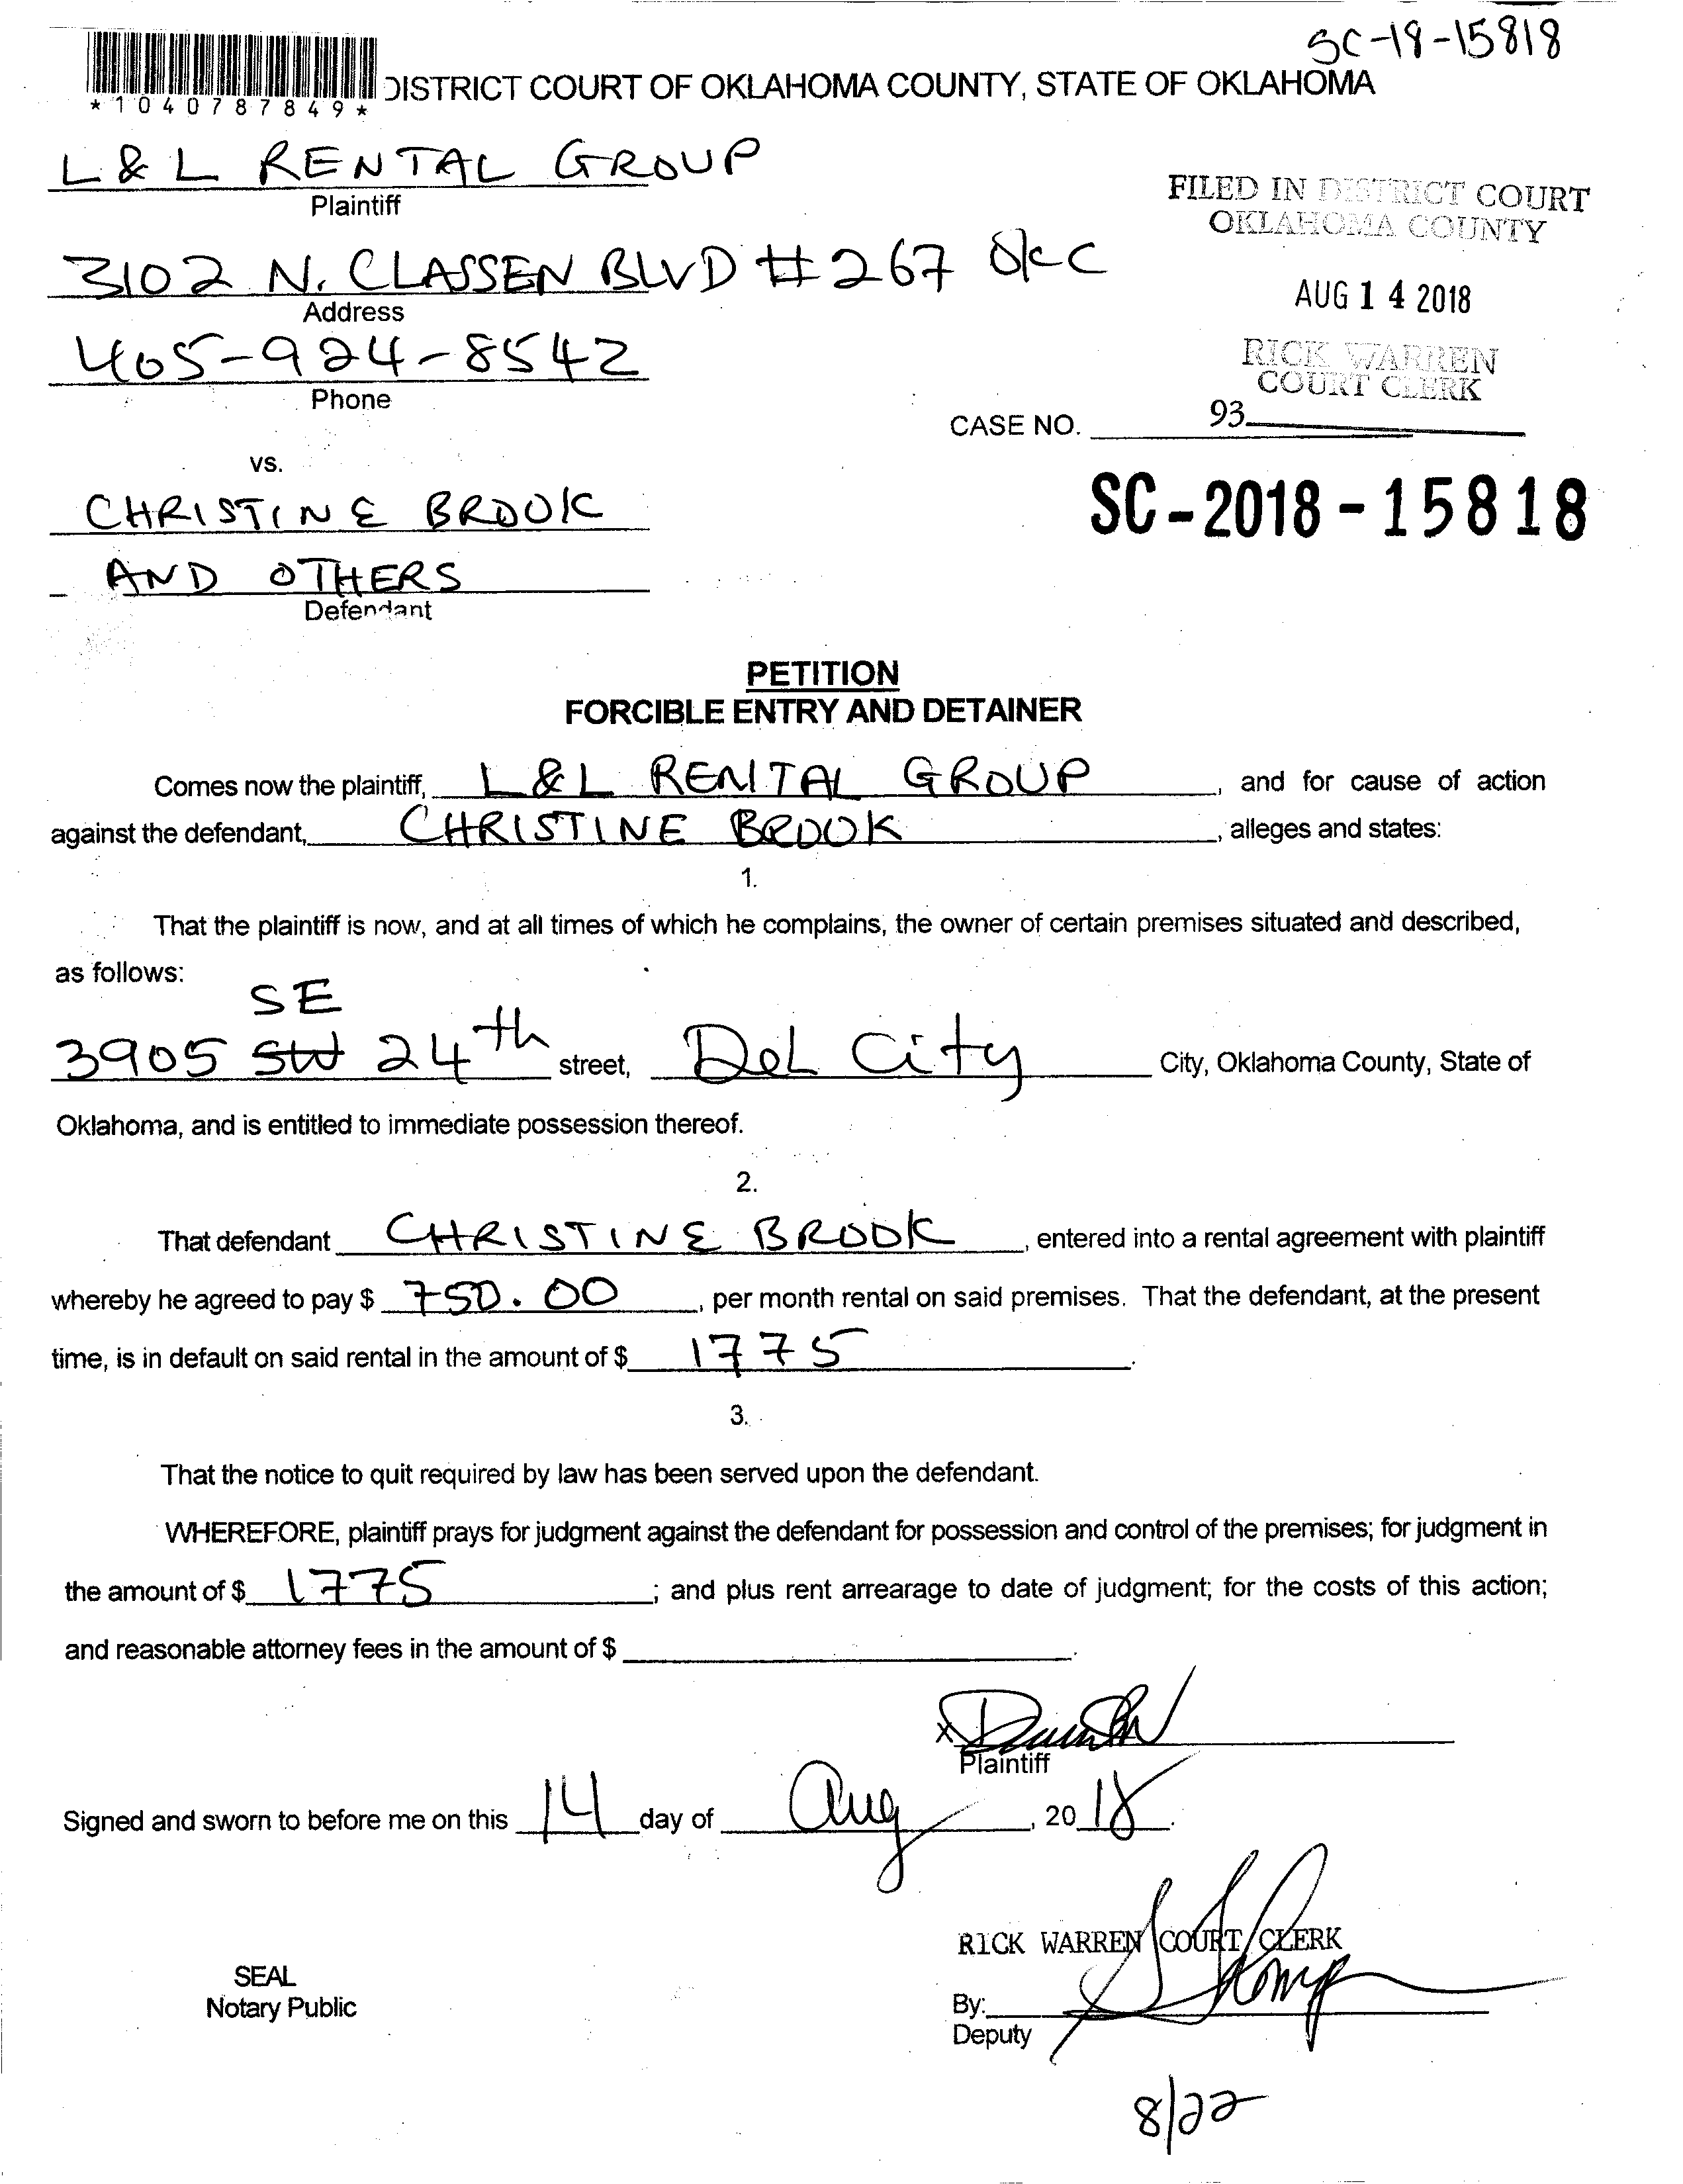 SC-18-15818
DISTRICT COURT OF OKLAHOMA COUNTY, STATE OF OKLAHOMA
*1040787849*
L & L RENTAL GROUP
Plaintiff
FILED IN DISTRICT COURT
OKLAHOMA COUNTY
3102 N. CLASSEN BLVD #267 OKC
Address
AUG 14 2018
405-924-8542
Phone
RICK WARREN
COURT CLERK
93
CASE NO.
vs.
SC-2018-15818
CHRISTINE BROOK
AND OTHERS
Defendant
PETITION
FORCIBLE ENTRY AND DETAINER
Comes now the plaintiff, L & L RENTAL GROUP, and for cause of action
against the defendant, CHRISTINE BROOK, alleges and states:
1.
That the plaintiff is now, and at all times of which he complains, the owner of certain premises situated and described,
as follows:
SE
3905 SW 24th street, Del City City, Oklahoma County, State of
Oklahoma, and is entitled to immediate possession thereof.
2.
That defendant CHRISTINE BROOK, entered into a rental agreement with plaintiff
whereby he agreed to pay $ 750.00, per month rental on said premises. That the defendant, at the present
time, is in default on said rental in the amount of $ 1775.
3.
That the notice to quit required by law has been served upon the defendant.
WHEREFORE, plaintiff prays for judgment against the defendant for possession and control of the premises; for judgment in
the amount of $ 1775; and plus rent arrearage to date of judgment; for the costs of this action;
and reasonable attorney fees in the amount of $ .
X
Plaintiff
Signed and sworn to before me on this 14 day of Aug, 2018.
RICK WARREN COURT CLERK
SEAL
Notary Public
By:
Deputy
8/22